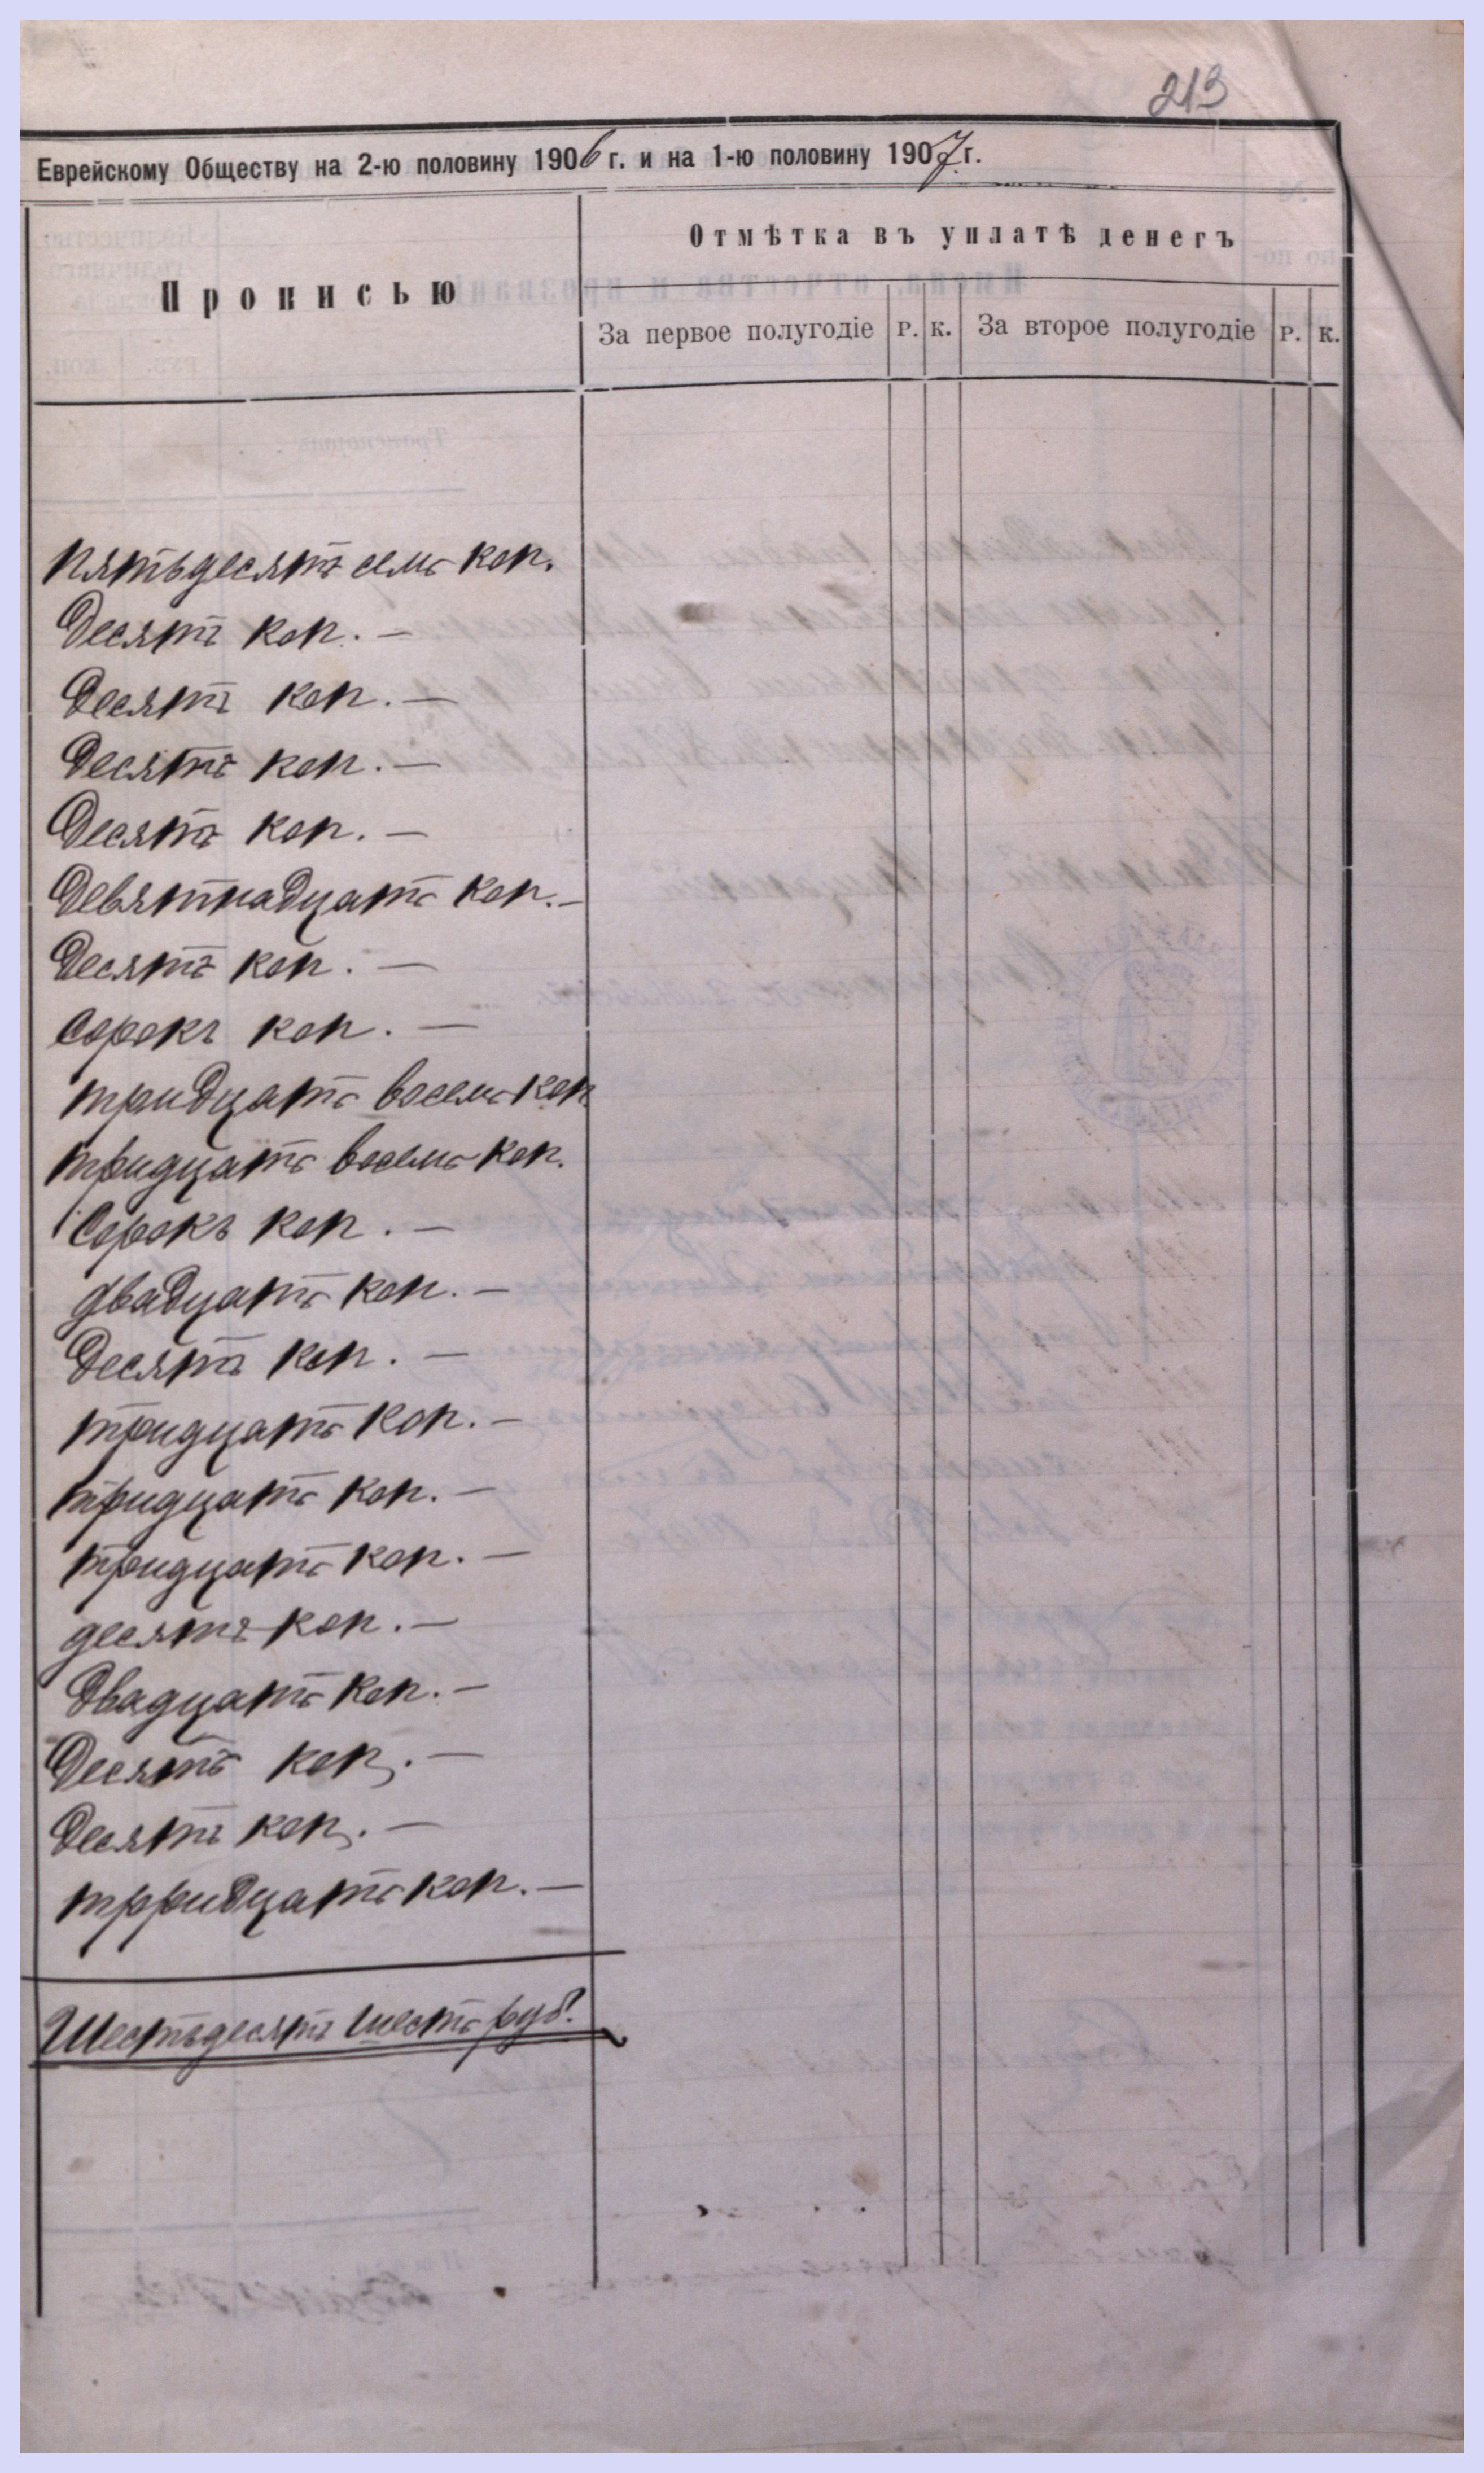 213
Еврейскому Обществу на 2-ю половину 1906 г. и на 1-ю половину 1907 г.
Прописью
Отмѣтка въ уплатѣ денегъ
За первое полугодіе Р. К. За второе полугодіе Р. К.
Пятьдесятъ семь коп.
Десять коп. —
Десять коп. —
Десять коп. —
Десять коп. —
Девятнадцать коп. —
Десять коп. —
Сорокъ коп. —
тридцать восемь коп
тридцать восемь коп.
Сорокъ коп. —
двадцать коп. —
Десять коп. —
тридцать коп. —
тридцать коп. —
тридцать коп. —
десять коп. —
Двадцать коп. —
Десять коп. —
Десять коп. —
тридцать коп. —
Шестьдесятъ шесть руб.